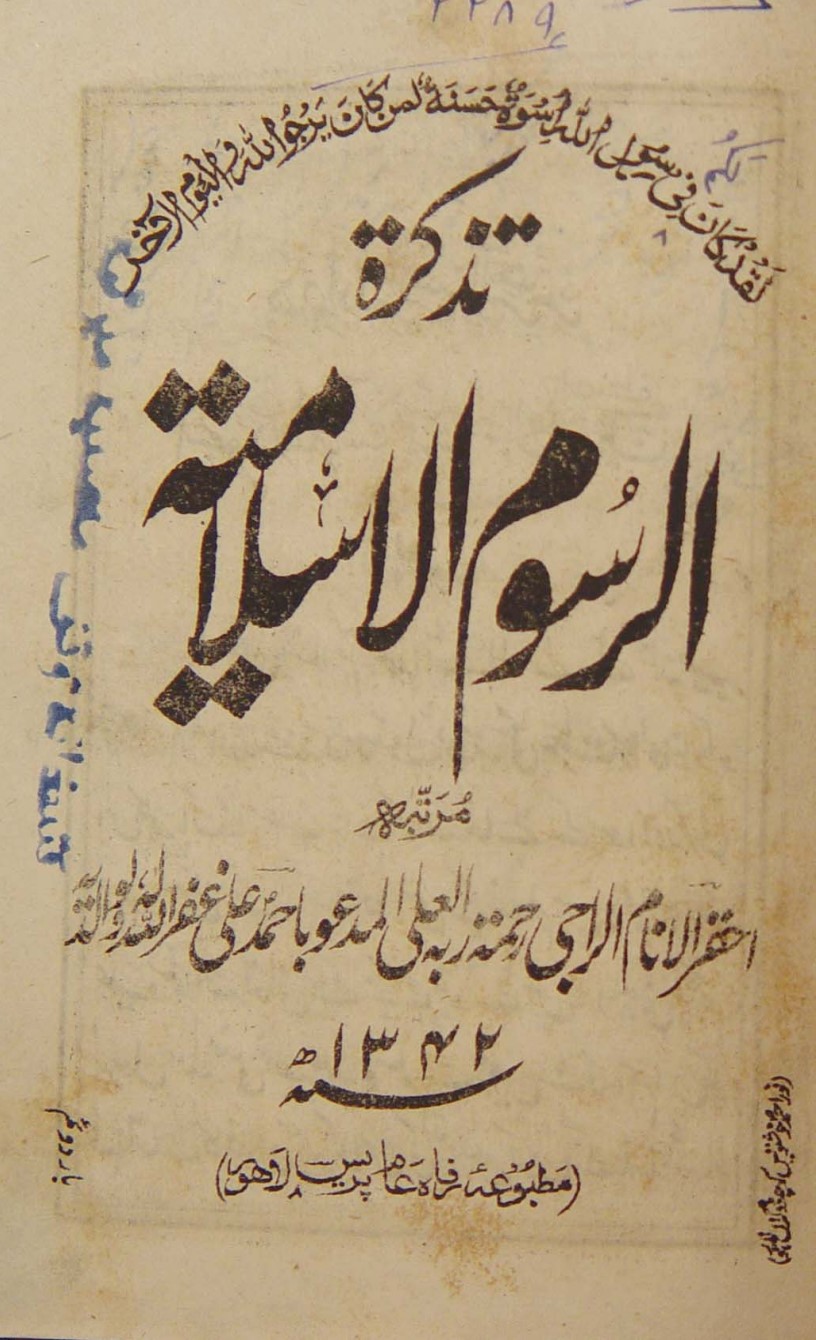 ۲۲۸۹
لَقَدْ كَانَ لَكُمْ فِي رَسُولِ اللهِ اُسْوَةٌ حَسَنَةٌ لِمَنْ كَانَ يَرْجُوا اللهَ وَ الْيَوْمَ الْآخِرَ
تذکرۃ
الرسُوم الاسلامیۃ
مُرَتّبہ
احقر الانام الراجی رحمۃ ربہ العلی المدعو باحمد علی غفر اللہ لہ ولوالدیہ
۱۳۴۲ سنہ ھ
(مطبُوعہ رفاہ عام پریس لاھور)
بار دوئم